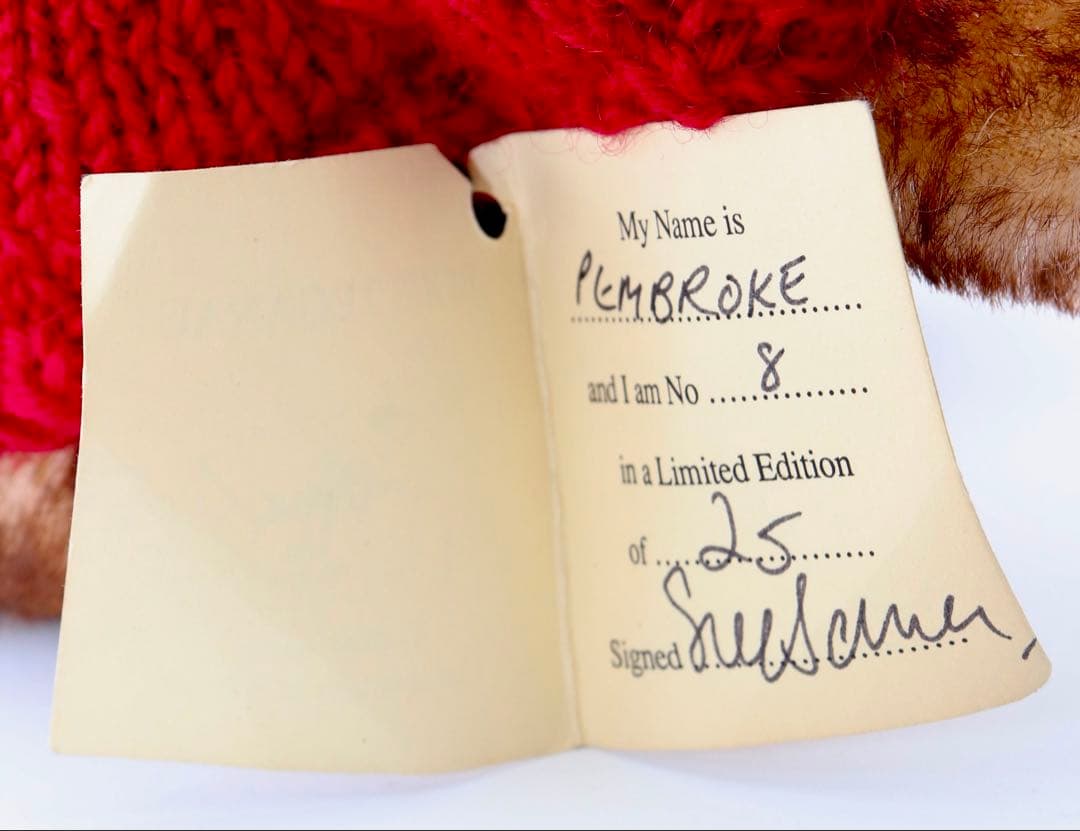 My Name is
PEMBROKE
and I am No 8
in a Limited Edition
of 25
Signed